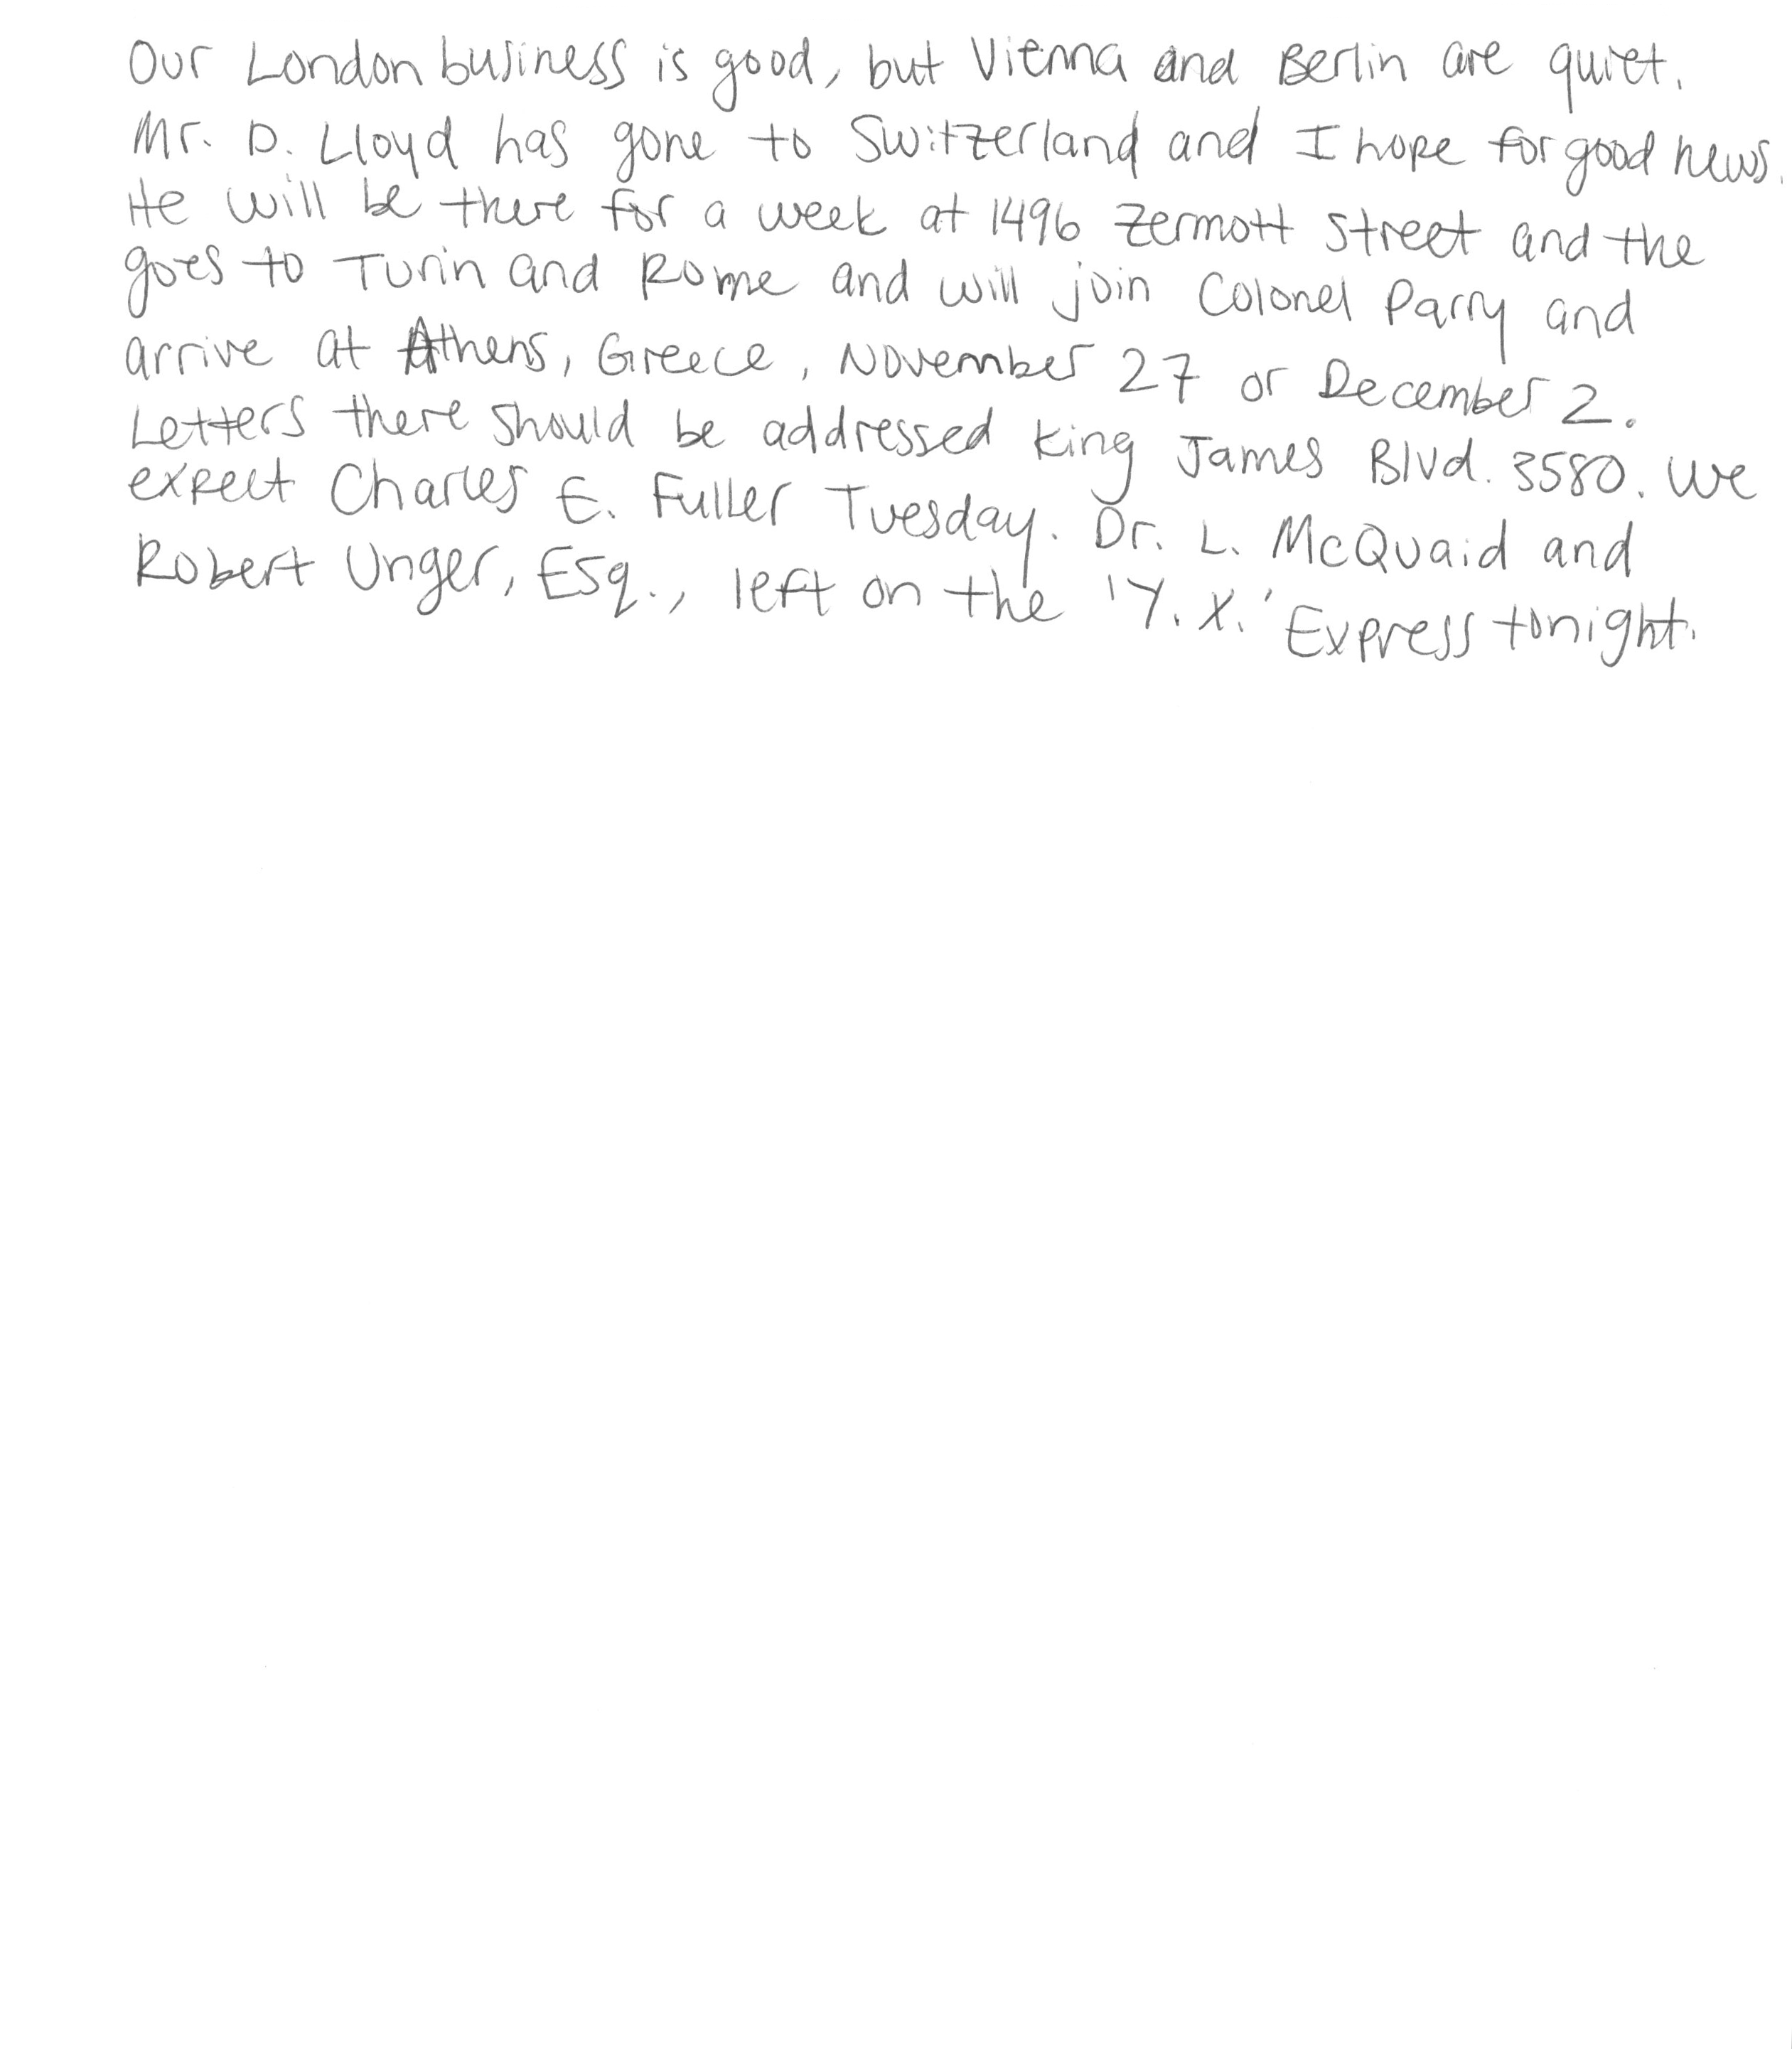 Our London business is good, but Vienna and Berlin are quiet.
Mr. D. Lloyd has gone to Switzerland and I hope for good news.
He will be there for a week at 1496 Zermott street and the
goes to Turin and Rome and will join Colonel Parry and
arrive at Athens, Greece, November 27 or December 2.
Letters there should be addressed King James Blvd. 3580. We
expect Charles E. Fuller Tuesday. Dr. L. McQuaid and
Robert Unger, Esq., left on the 'Y. X.' Express tonight.